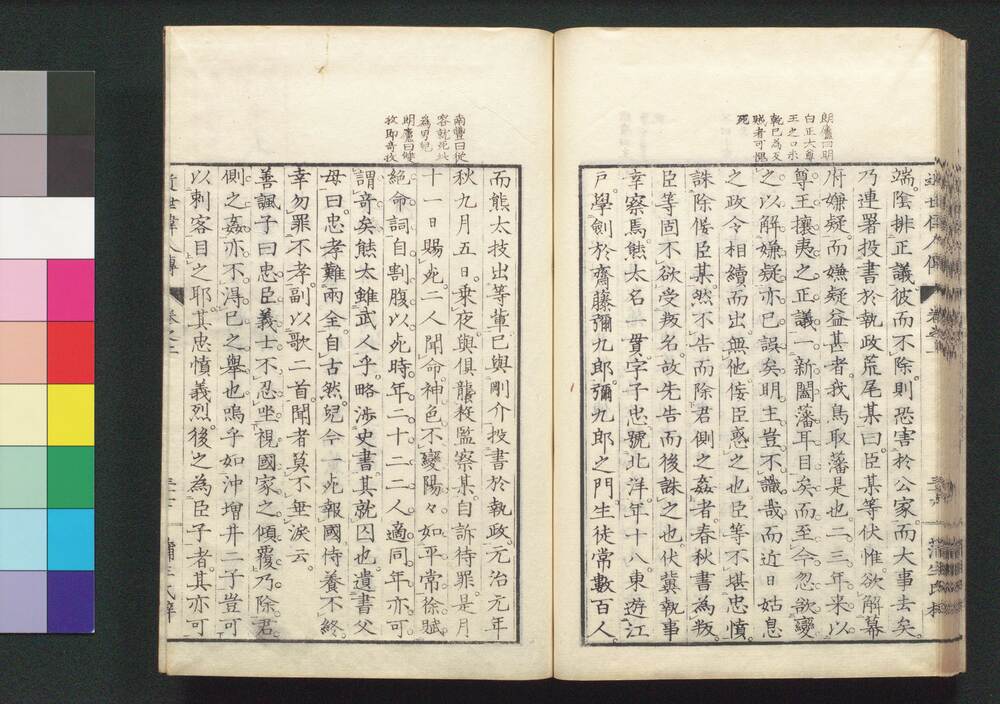 朗廬曰明
白正大尊
王之口氷
死
端陰排正議彼而不除則恐害於公家而大事去矣
乃連署投書於執政荒尾某曰臣某等伏惟欲解幕
府嫌疑而嫌疑益甚者我鳥取藩是也二三年來以
尊王攘夷之正議一新闔藩耳目矣而至今忽欲變
之以解嫌疑亦已誤矣明主豈不識哉而近日姑息
之政令相續而出無他佞臣惑之也臣等不堪忠憤
誅除佞臣某然不告而除君側之姦者春秋書為叛
臣等固不欲受叛名故先告而後誅之也伏冀執事
幸察焉熊太名一貫字子忠號北洋年十八東遊江
戶學劍於齋藤彌九郎彌九郎之門生徒常數百人
南豐曰從
容就死
朗廬曰
近世偉人傳
蒲生氏梓
而熊太技出等輩已與剛介投書於執政元治元年
秋九月五日乘夜與俱襲救監察某自訴待罪是月
十一日賜死二人聞命神色不變陽々如平常徐賦
絕命詞自割腹以死時年二十二二人適同年亦可
謂奇矣熊太雖武人乎略涉史書其就囚也遺書父
母曰忠孝難兩全自古然兒今一死報國侍養不終
幸勿罪不孝副以歌二首聞者莫不垂淚云
善諷子曰忠臣義士不忍坐視國家之傾覆乃除君
側之姦亦不得已之舉也嗚乎如沖增井二子豈可
以刺客目之耶其忠憤義烈後之為臣子者其亦可
近世偉人傳
蒲生氏梓